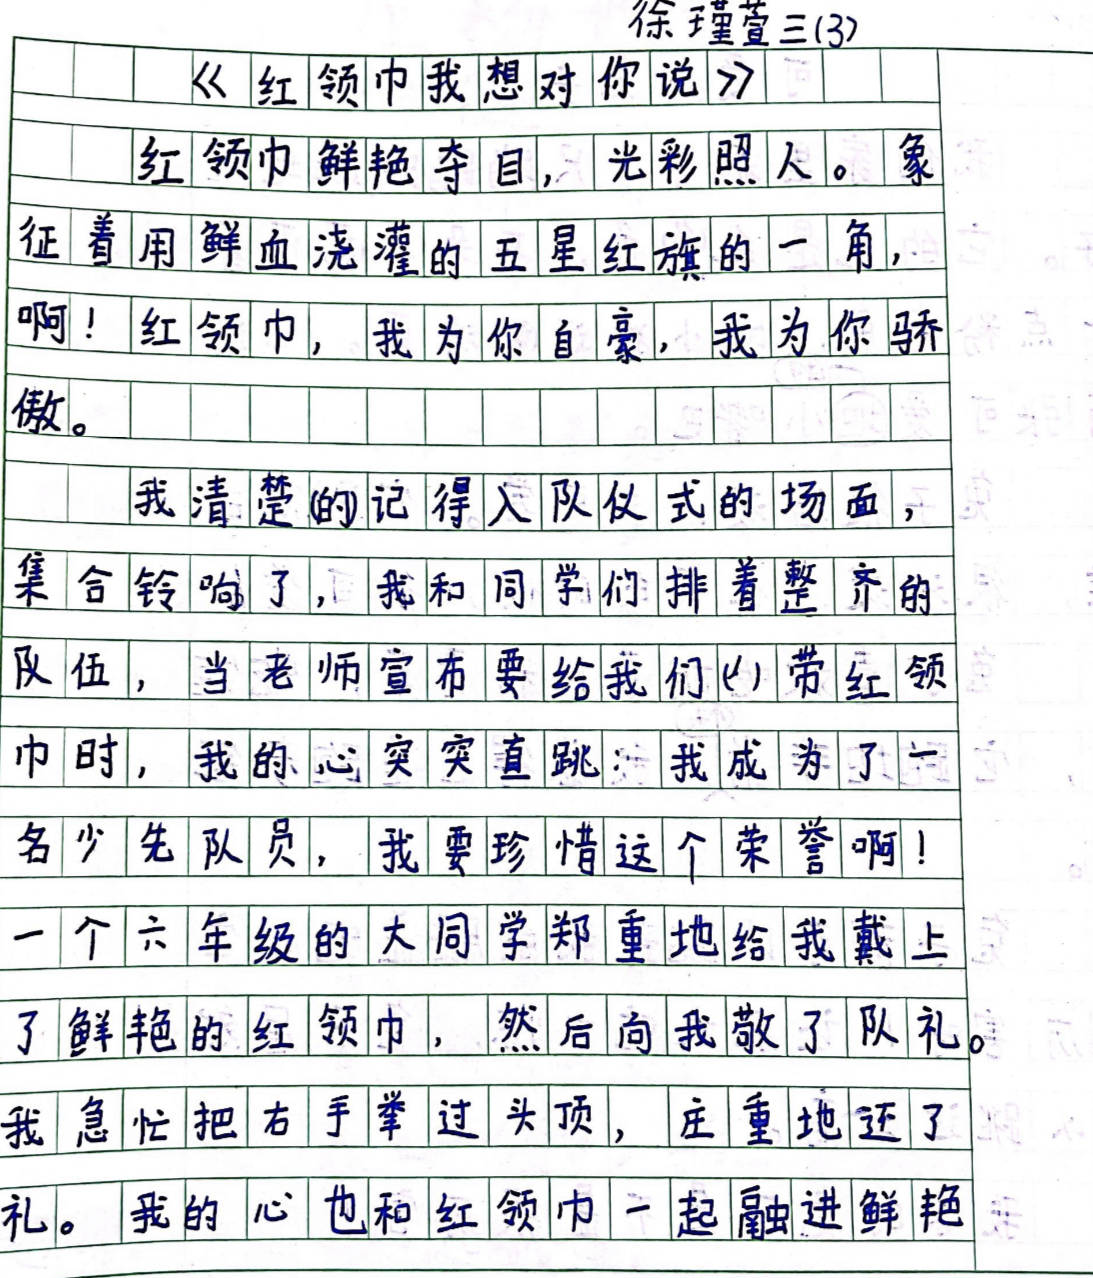 徐瑾萱三(3)
《红领巾我想对你说》
红领巾鲜艳夺目，光彩照人。象
征着用鲜血浇灌的五星红旗的一角，
啊！红领巾，我为你自豪，我为你骄
傲。
我清楚(的)记得入队仪式的场面，
集合铃响了，我和同学们排着整齐的
队伍，当老师宣布要给我们( )带红领
巾时，我的心突突直跳：我成为了一
名少先队员，我要珍惜这个荣誉啊！
一个六年级的大同学郑重地给我戴上
了鲜艳的红领巾，然后向我敬了队礼。
我急忙把右手举过头顶，庄重地还了
礼。我的心也和红领巾一起融进鲜艳